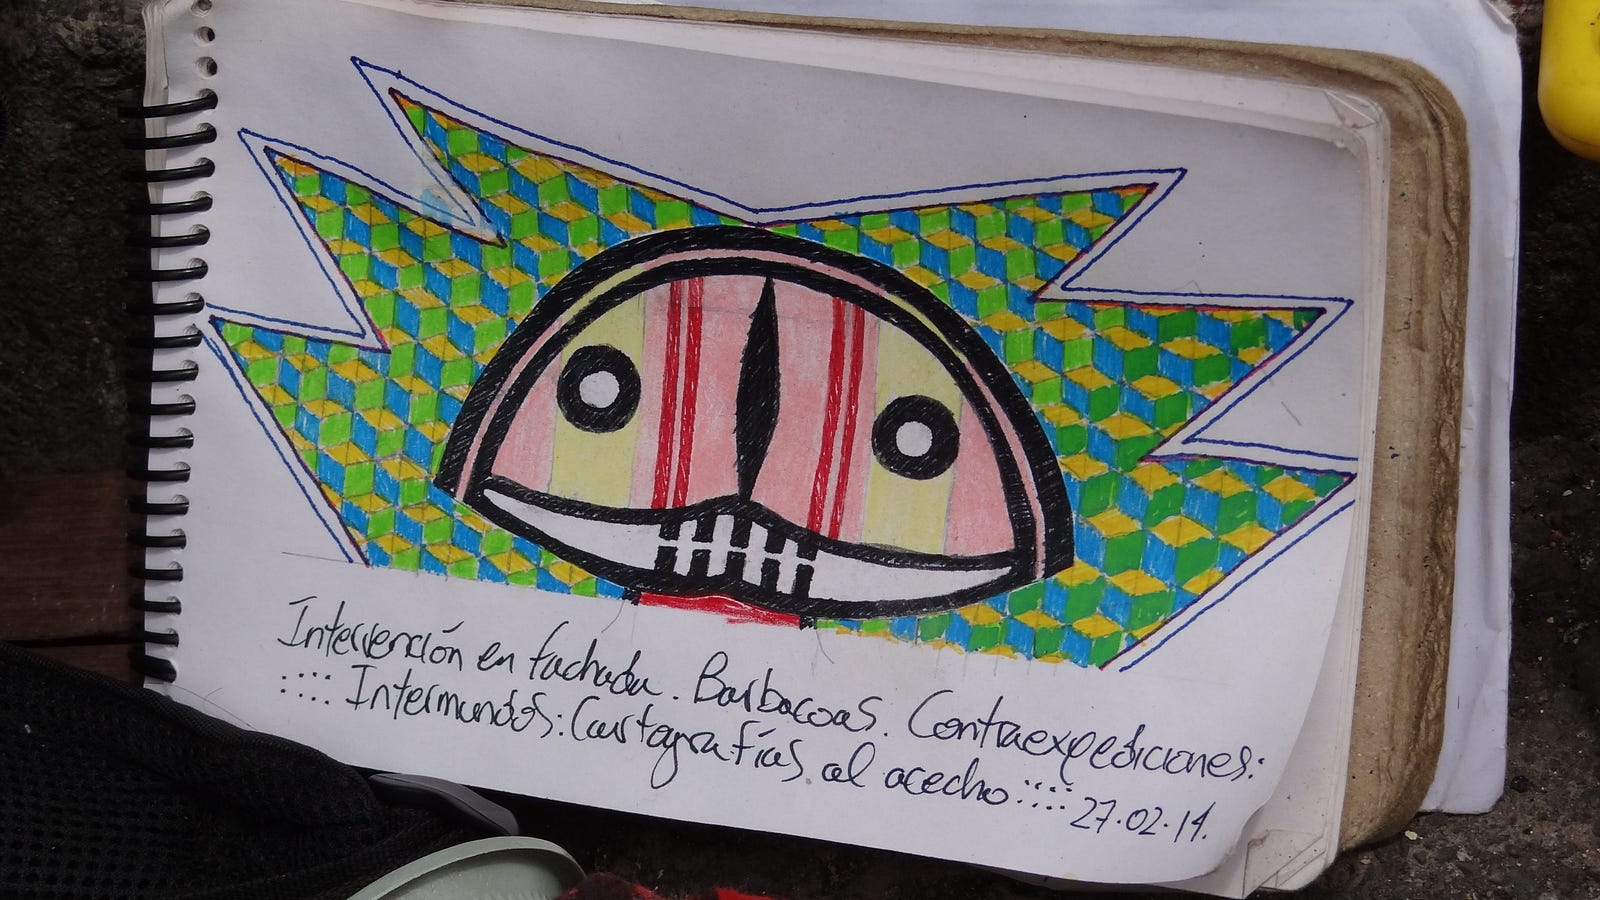 Intervención en fachada. Barbacoas. Contraexpediciones:
:::: Intermundos: Cartografías al acecho :::: 27.02.14.